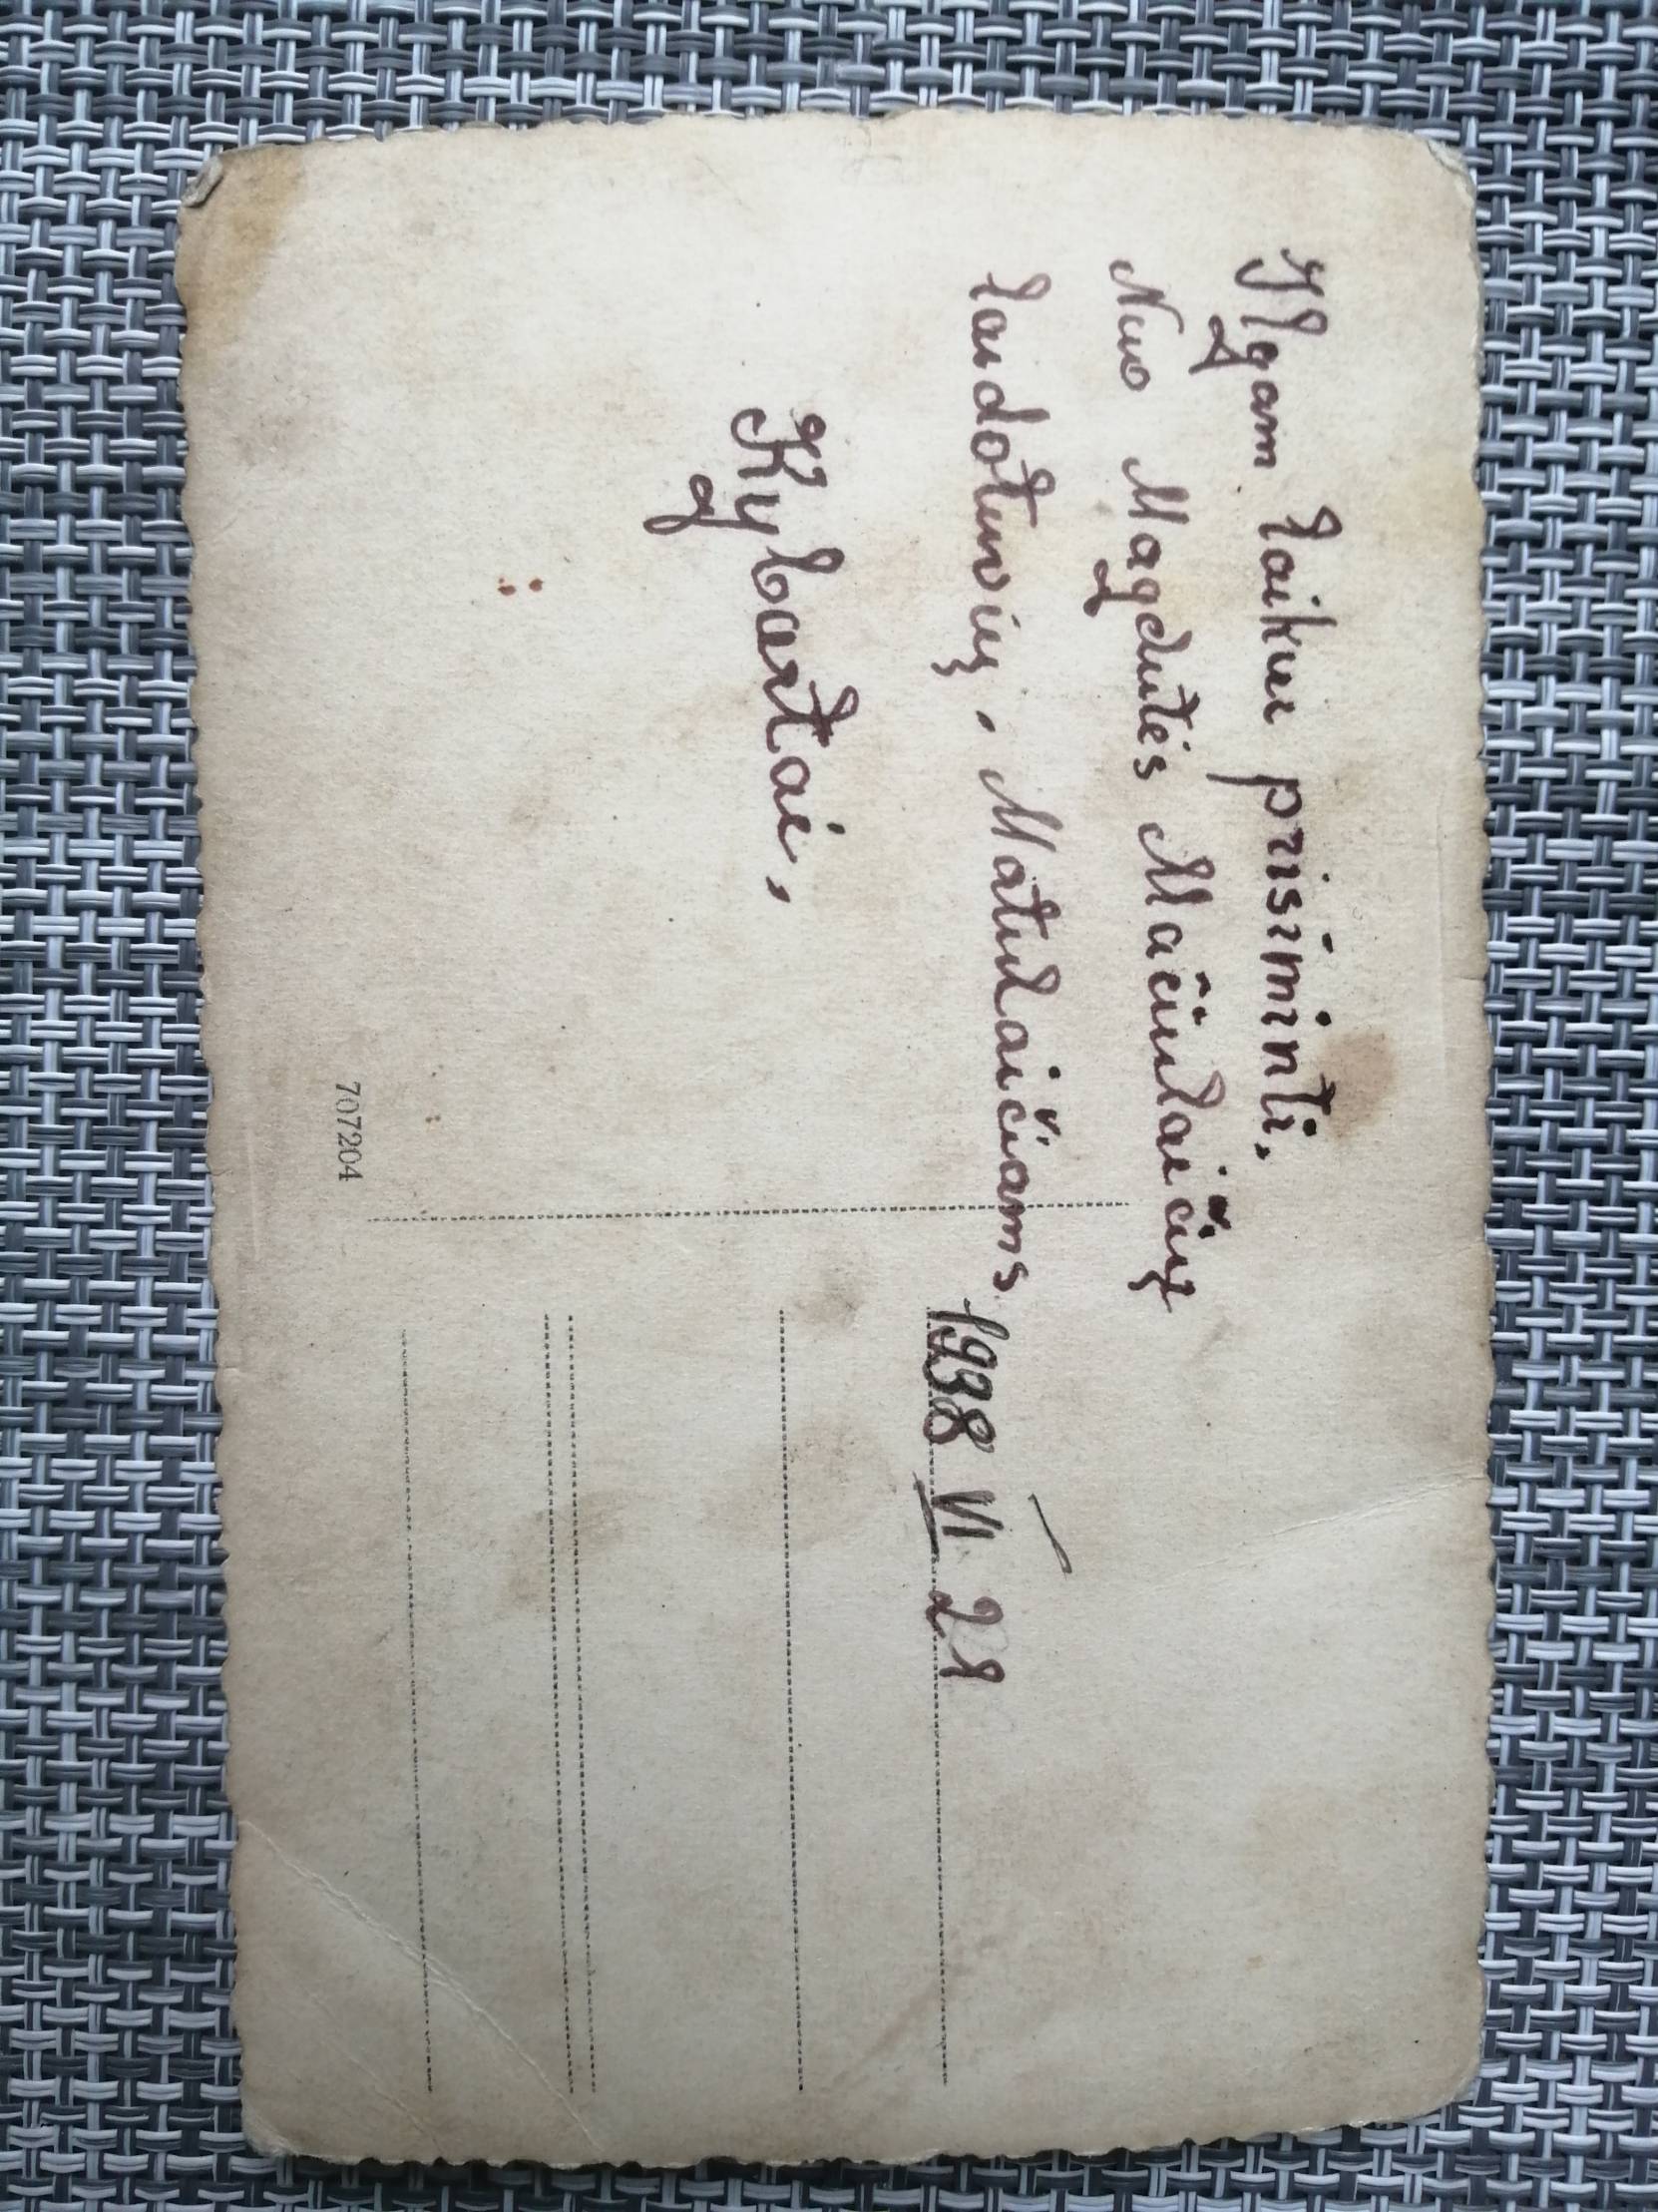 Ilgam laikui prisiminti.
Nuo Magdutės Mačiulaičių
laidotuvių, Matulaičiams
1938 VI 21
Kybartai,
707204